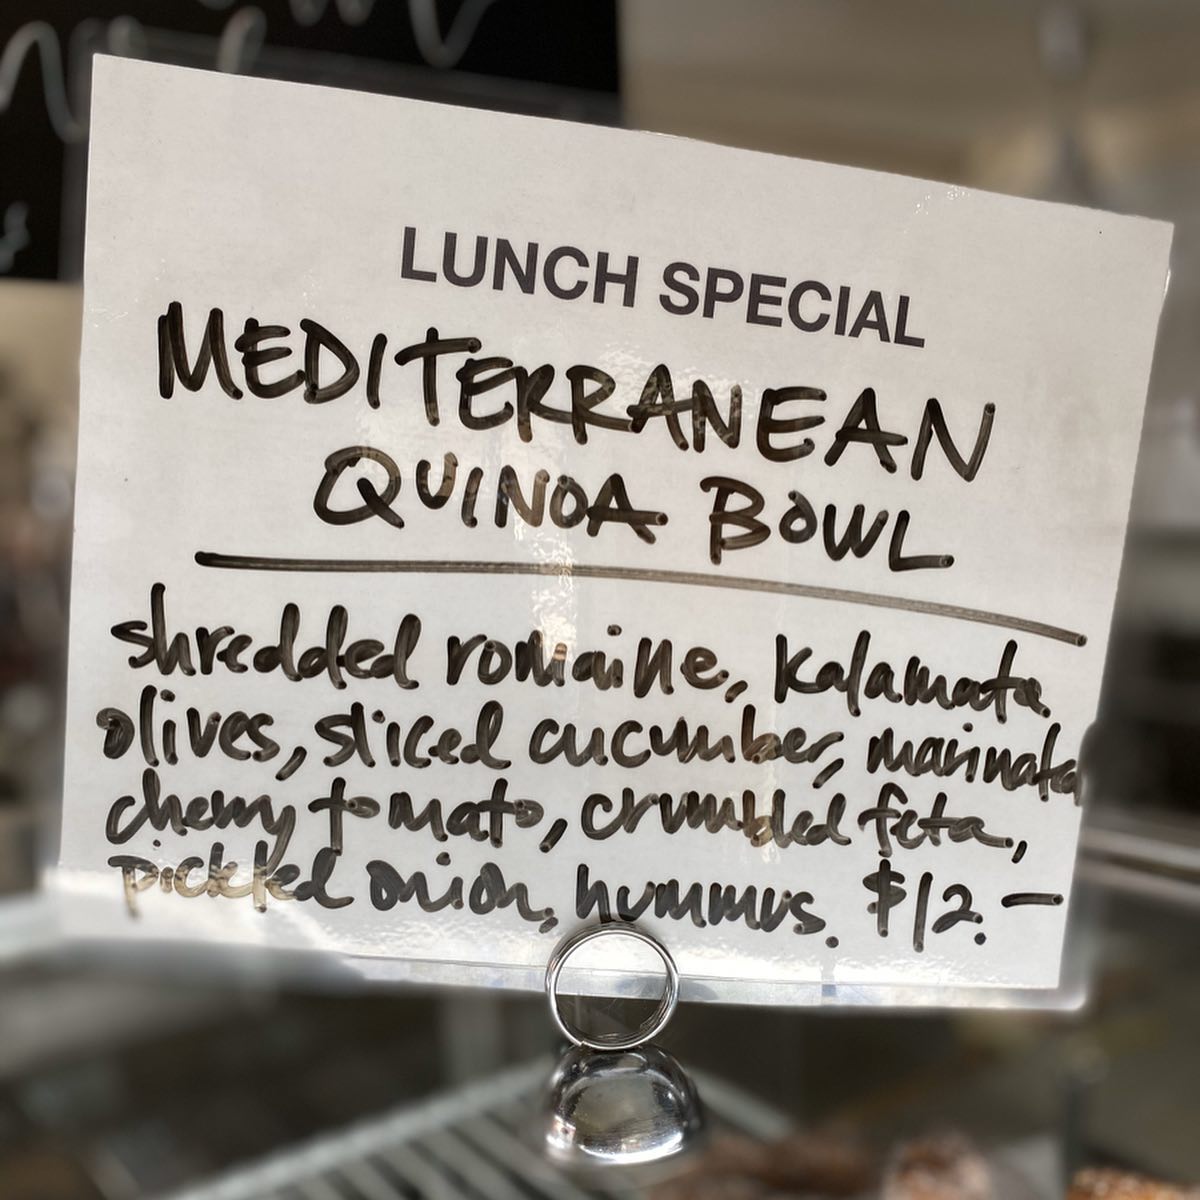 LUNCH SPECIAL
MEDITERRANEAN
QUINOA BOWL
shredded romaine, kalamata
olives, sliced cucumber, marinated
cherry tomato, crumbled feta,
pickled onion, hummus. $12.–